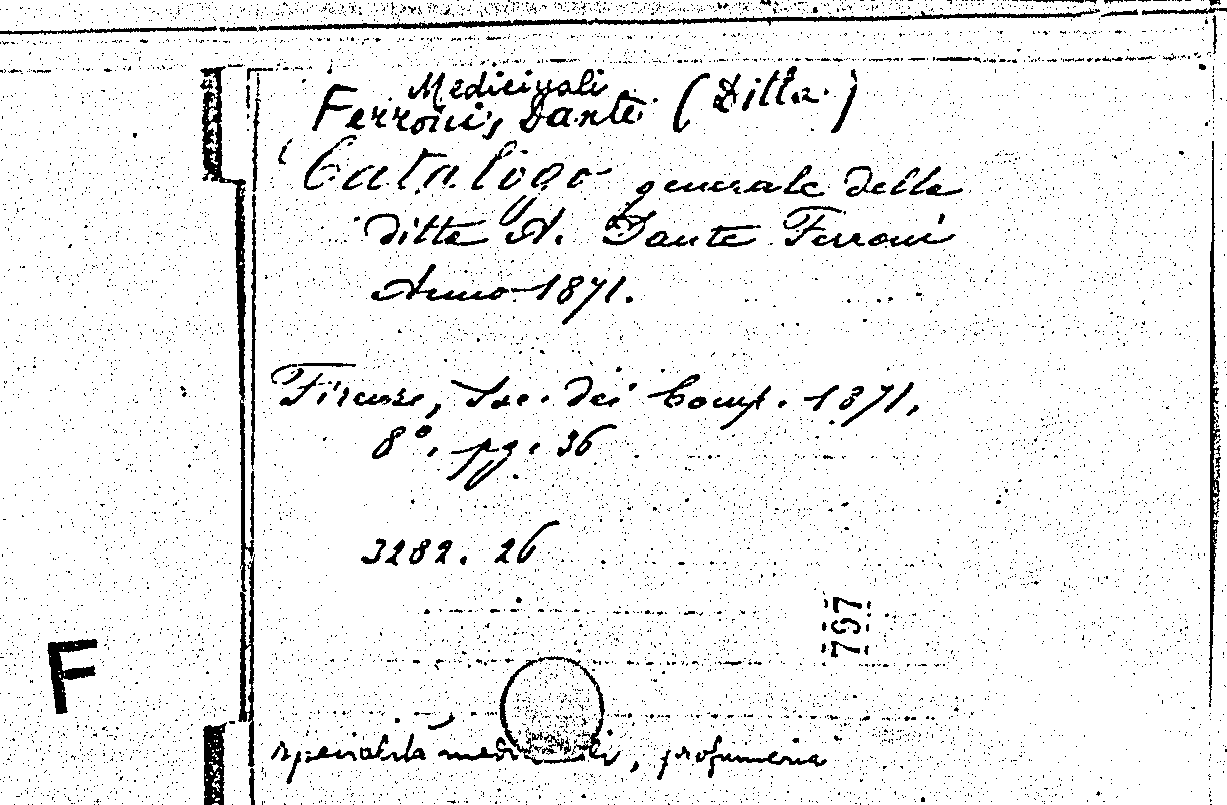 Medicinali
Ferroni, Dante (Ditta)
Catalogo generale della
ditta A. Dante Ferroni
Anno 1871.
Firenze, Soc. dei Comp. 1871.
8°. pg. 36
3282. 26
797
F
specialità medicinali, profumeria